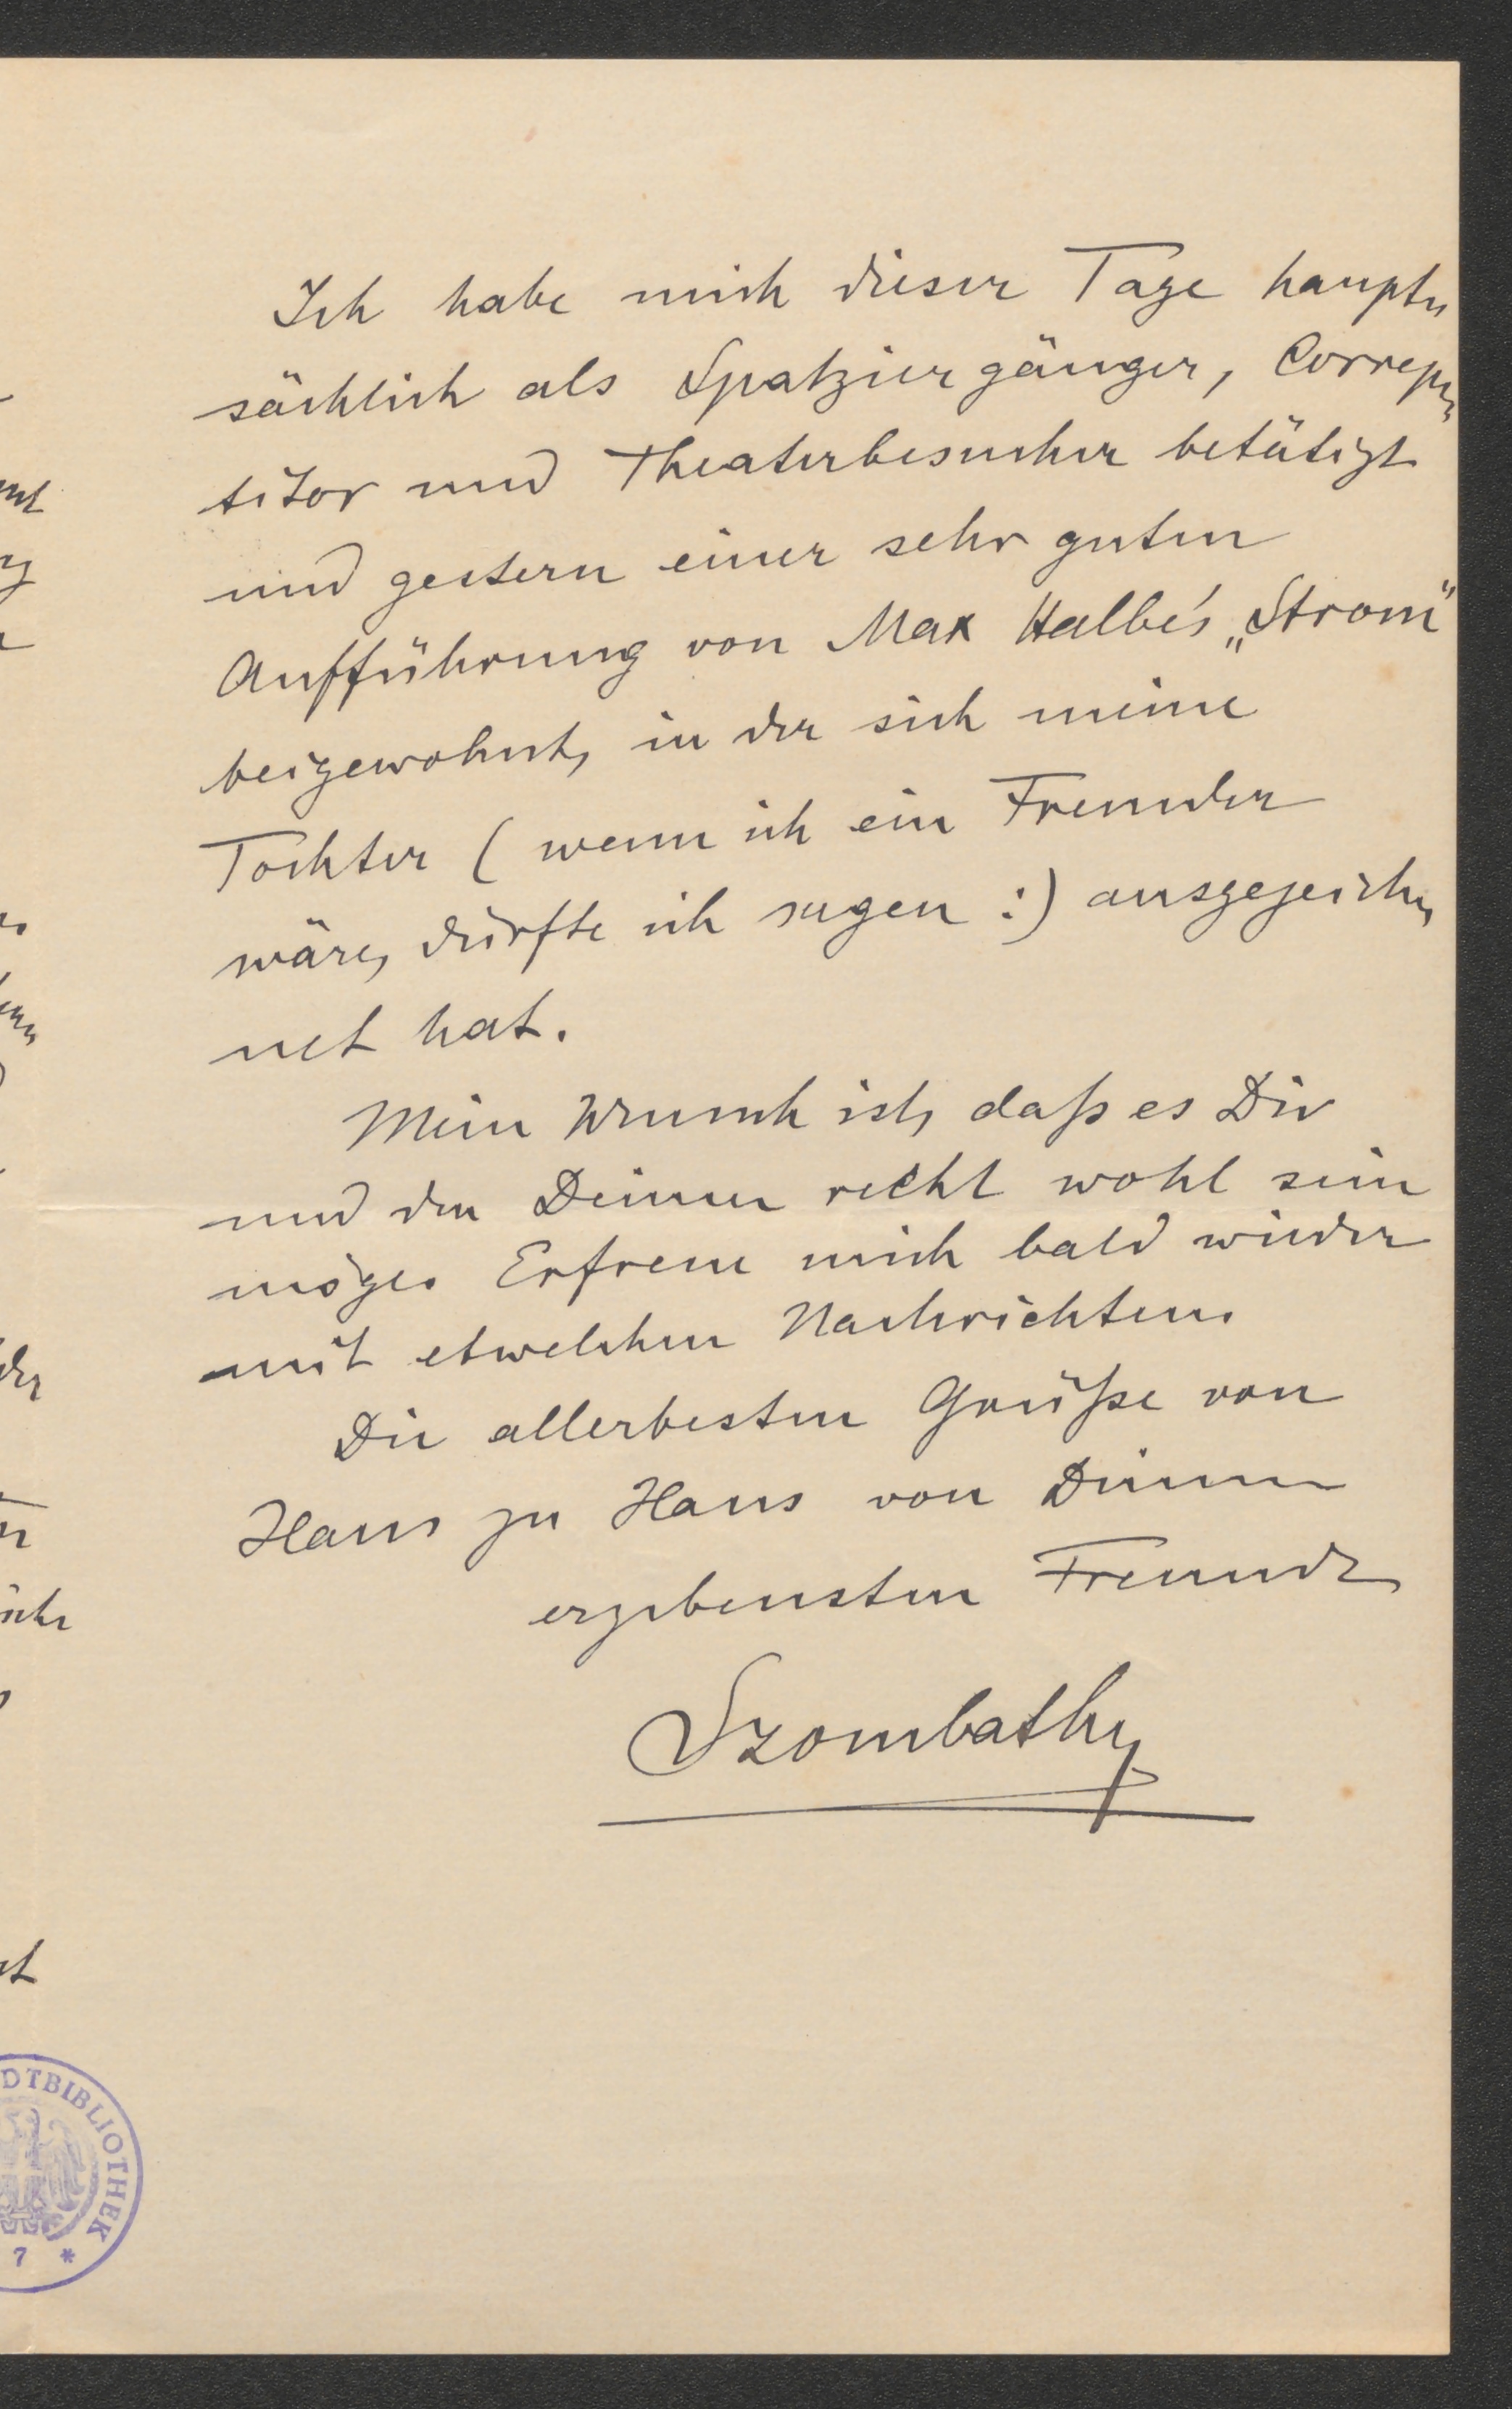 Ich habe mich dieser Tage haupt„
sächlich als Spatziergänger, Correpe„
titor und Theaterbesucher betätigt
und gestern einer sehr guten
Aufführung von Max Halbe's „Strom“
beigewohnt, in der sich meine
Tochter (wenn ich ein Fremder
wäre, dürfte ich sagen :) ausgezeich„
net hat.
Mein Wunsch ist, daß es Dir
und den Deinen recht wohl sein
möge. Erfreue mich bald wieder
mit etwelchen Nachrichten.
Die allerbesten Grüße von
Haus zu Haus von Deinem
ergebensten Freunde
Szombathy
DTBIBLIOTHEK
7 *